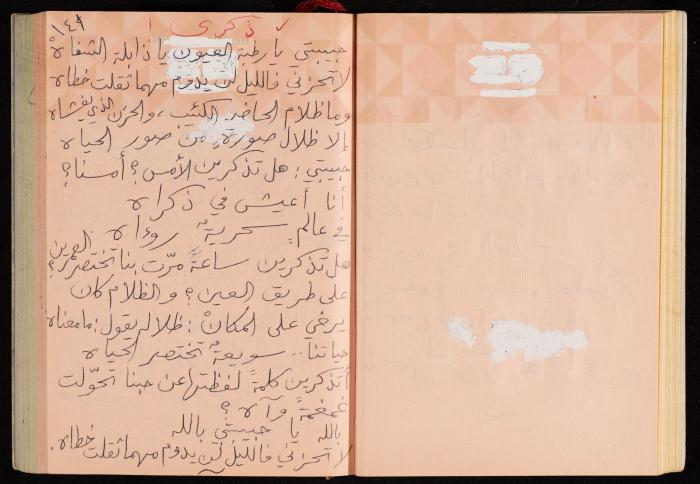 ١٤٢
✓ ذكرى ١
حبيبتي يا رطبة العيون يا ذابلة الشفاهْ
لا تحزني فالليل لن يدوم مهما ثقلت خطاه
وما ظلام الحاضر الكئيب، والحزن الذي يغشاه
إلا ظلال صورةٍ من صور الحياه
حبيبتي: هل تذكرين الأمس؟ أمسنا؟
أنا أعيش في ذكراه
في عالمٍ سحريةٌ رؤاه
هل تذكرين ساعةً مرّت بنا تختصر العمرين؟
على طريق العين؟ والظلام كان
يرخي على المكانْ: ظلاله يقول: ما معناه
حياتنا.. سويعةٌ تختصر الحياه
أتذكرين كلمةً لفظتها عن حبنا تحوّلت
غمغمةً وآه؟
بالله يا حبيبتي بالله
لا تحزني فالليل لن يدوم مهما ثقلت خطاه.